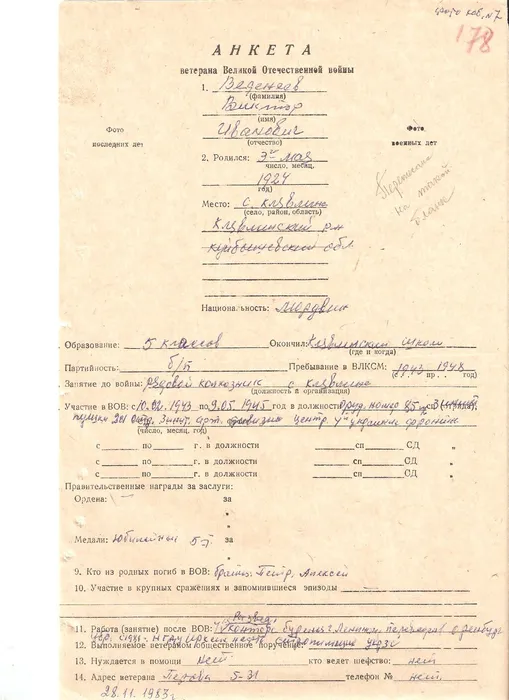 фото каб. №7
178
АНКЕТА
ветерана Великой Отечественной войны
1. Веденеев
(фамилия)
Виктор
(имя)
Фото
последних лет
Иванович
(отчество)
Фото
военных лет
2. Родился: 3го мая
число, месяц.
1924
год)
Место: с. Клявлино
(село, район, область)
Клявлинский р-н
Куйбышевской обл.
на такой
бланк
Национальность: мордвин
Образование: 5 классов Окончил: Клявлинский школ
(где и когда)
Партийность: б/п Пребывание в ВЛКСМ: 1943 1948
(с пр. год)
Занятие до войны: рядовой колхозник с Клявлино
(должность и организация)
Участие в ВОВ: с 10.02.1943 по 9.05.1945 год в должности оруд. номер 85
пушки зен. арт. дивизион центр 4й украин фронты
(число, месяц. год)
с по г. в должности сп СД
с по г. в должности сп СД
с по г. в должности сп СД
Правительственные награды за заслуги:
Ордена: — за
Медали: Юбилейных 5 за
9. Кто из родных погиб в ВОВ: братья Петр, Алексей
10. Участие в крупных сражениях и запомнившиеся эпизоды
11. Работа (занятие) после ВОВ: контора бурения г.
12. Выполняемое ветераном общественное поручение:
13. Нуждается в помощи нет кто ведет шефство: нет
14. Адрес ветерана 5-31 телефон № нет
28.11.1983г